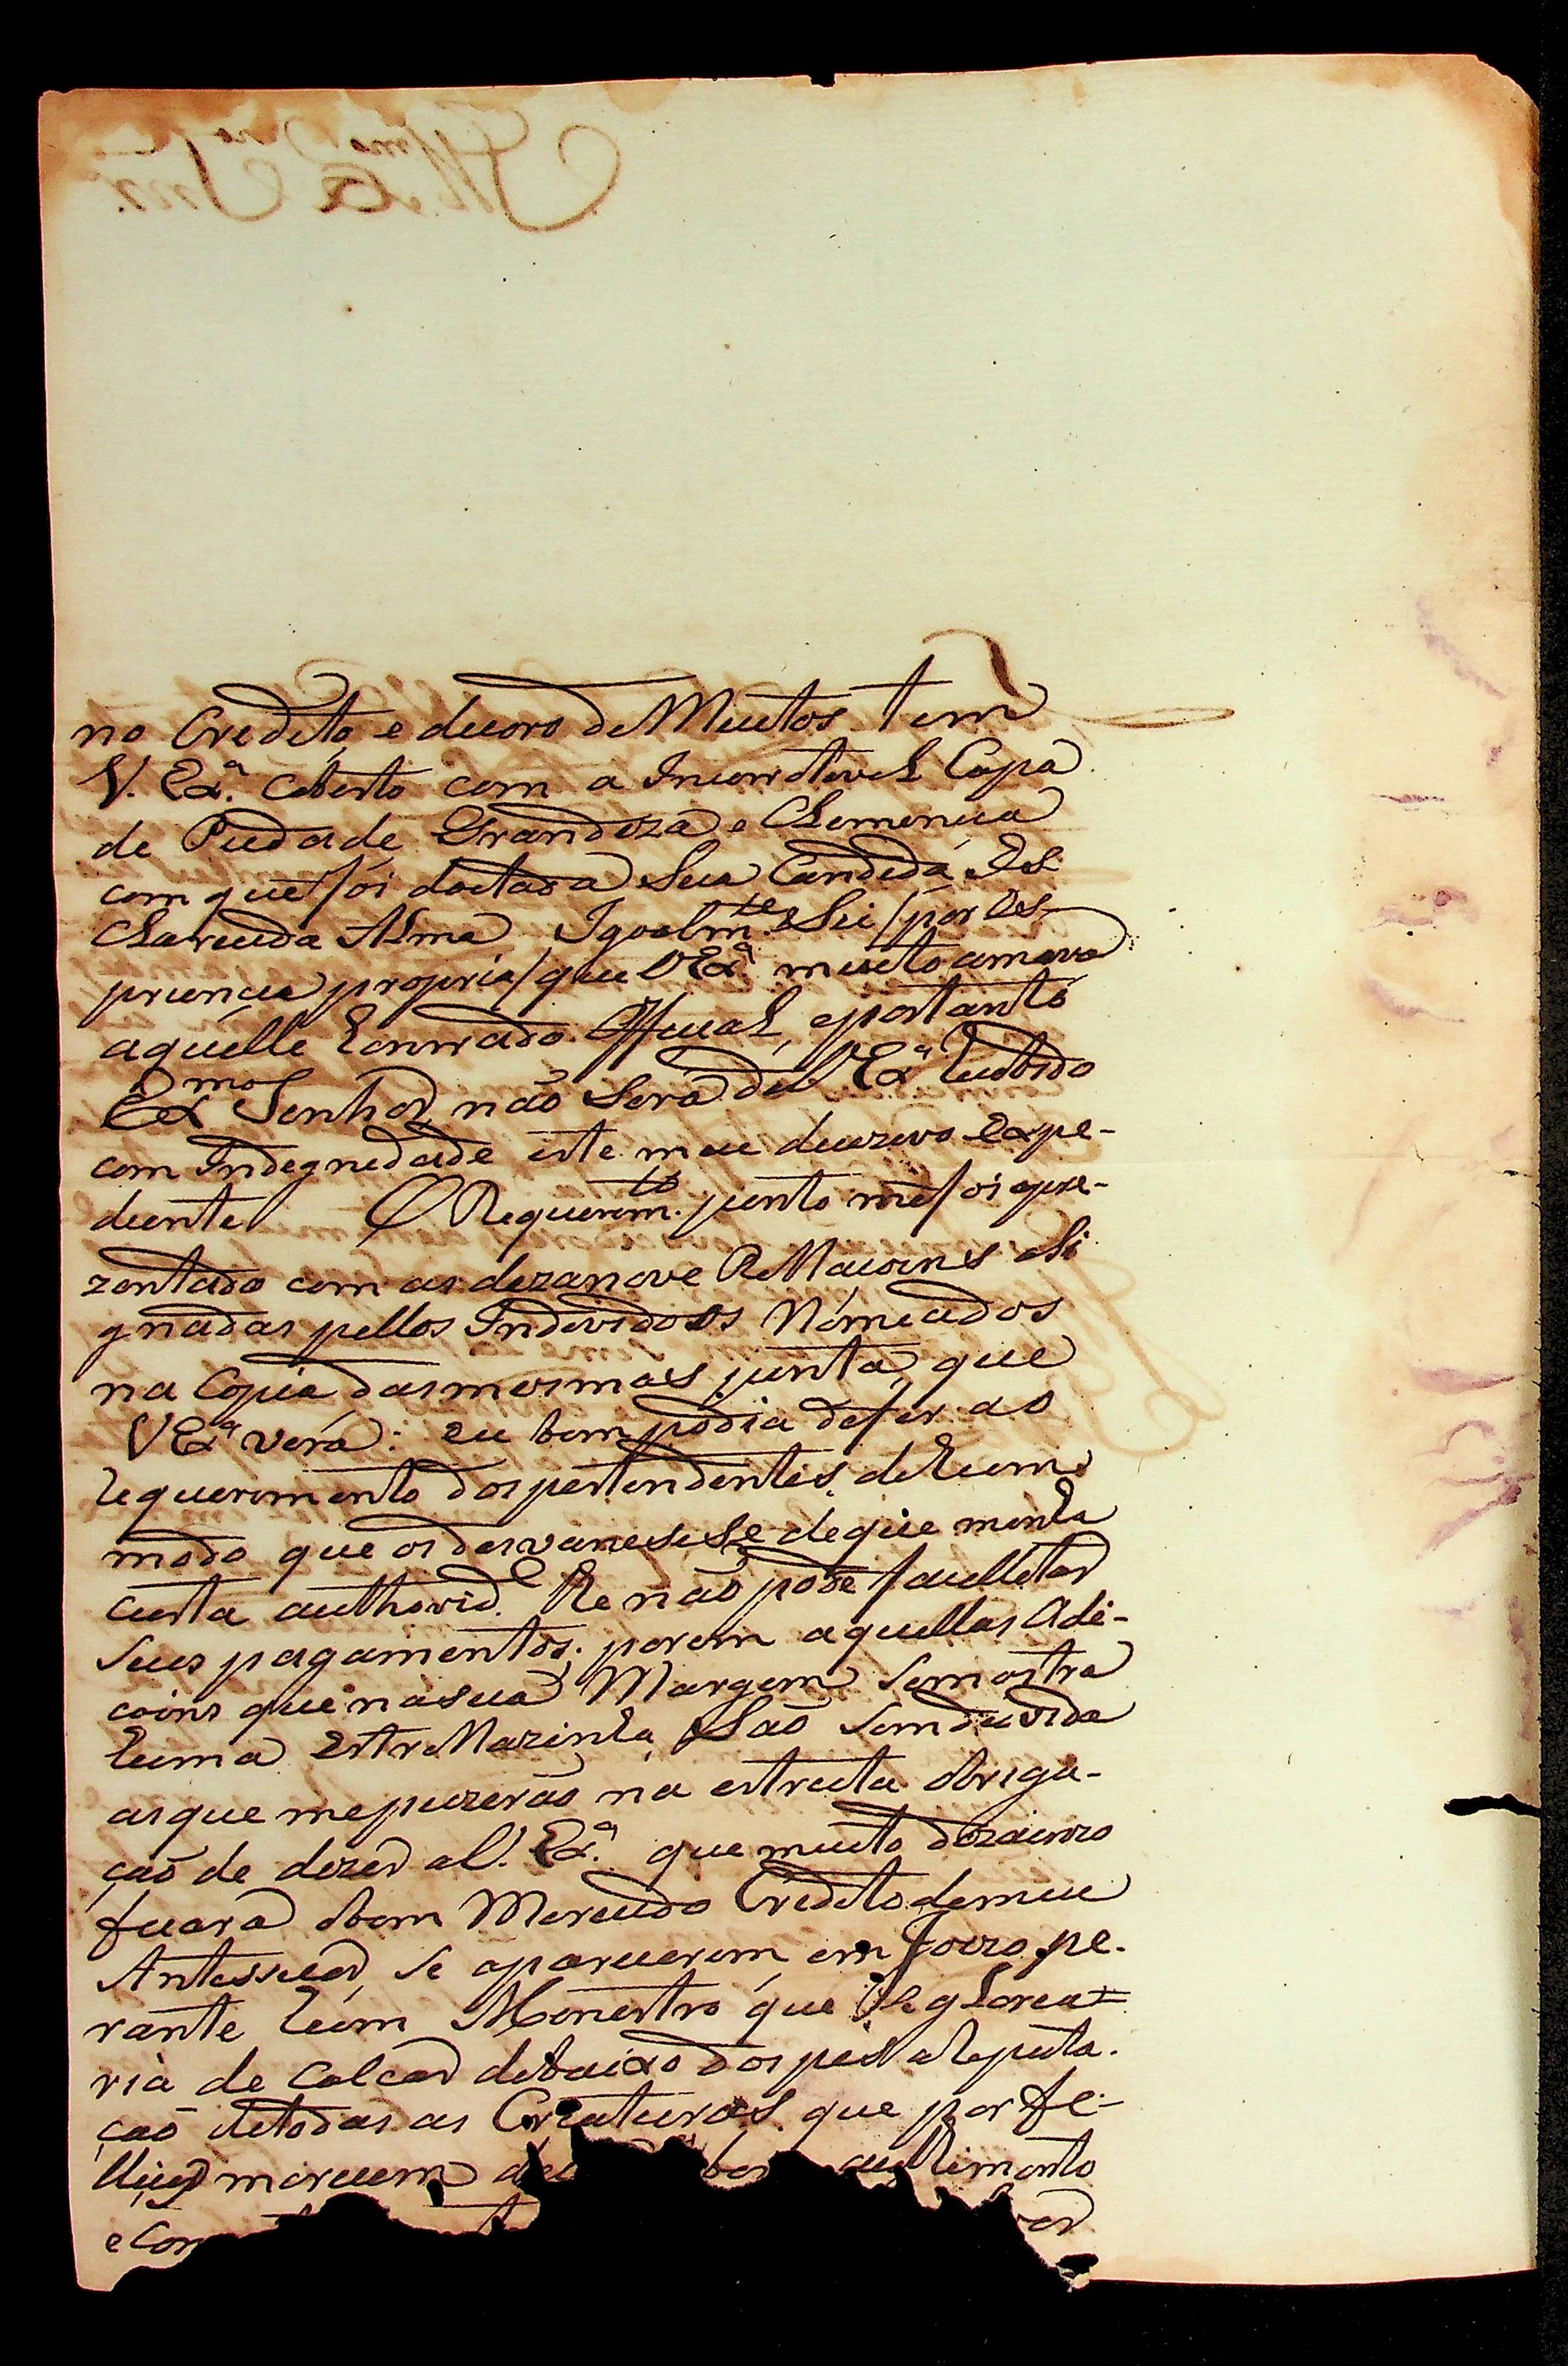 no Credito, e decoro de Muitos tem
V. Ex.ª coberto com a Incontavel Capa
de Piedade Grandeza e Clemencia
com que foi doctada Sua Candida Es
clarecida Alma Igoalm.te Sei /por Ex
priencia propria/ que VEx.ª muito amava
aquelle honrrado Official, eportanto
Ex.mo Senhor não Será de VEx.ª recebido
com Indegnedade este meu decizivo expe-
diente O Requerim.to junto mefoi apre-
zentado com as dezanove Rellacoins asi
gnadas pellos Individoos Nomeados
na Copia dasmesmas junta, que
VEx.ª verá: eu bem podia deferir ao
requerimento dos pertendentes dehum
modo que os desvanesese deque minha
curta authorid.e he não pode facullitar
seus pagamentos; porem aquellas Adi-
coins que nasua Margem semostra
huma EstreMazinha São semduvida
asque mepuzerão na estreita obriga-
cão de dizer a V. Ex.ª que muito dezairozo
ficara obom Merecido Credito demeu
Antessesor, se aparecerem em Joizo pe-
rante hum Menistro que Seglorea=
ria de Calcar debaixo dos pes a reputa-
cão detodas as Creaturas que por fe-
llicid.e merecem acolhimento
e Con